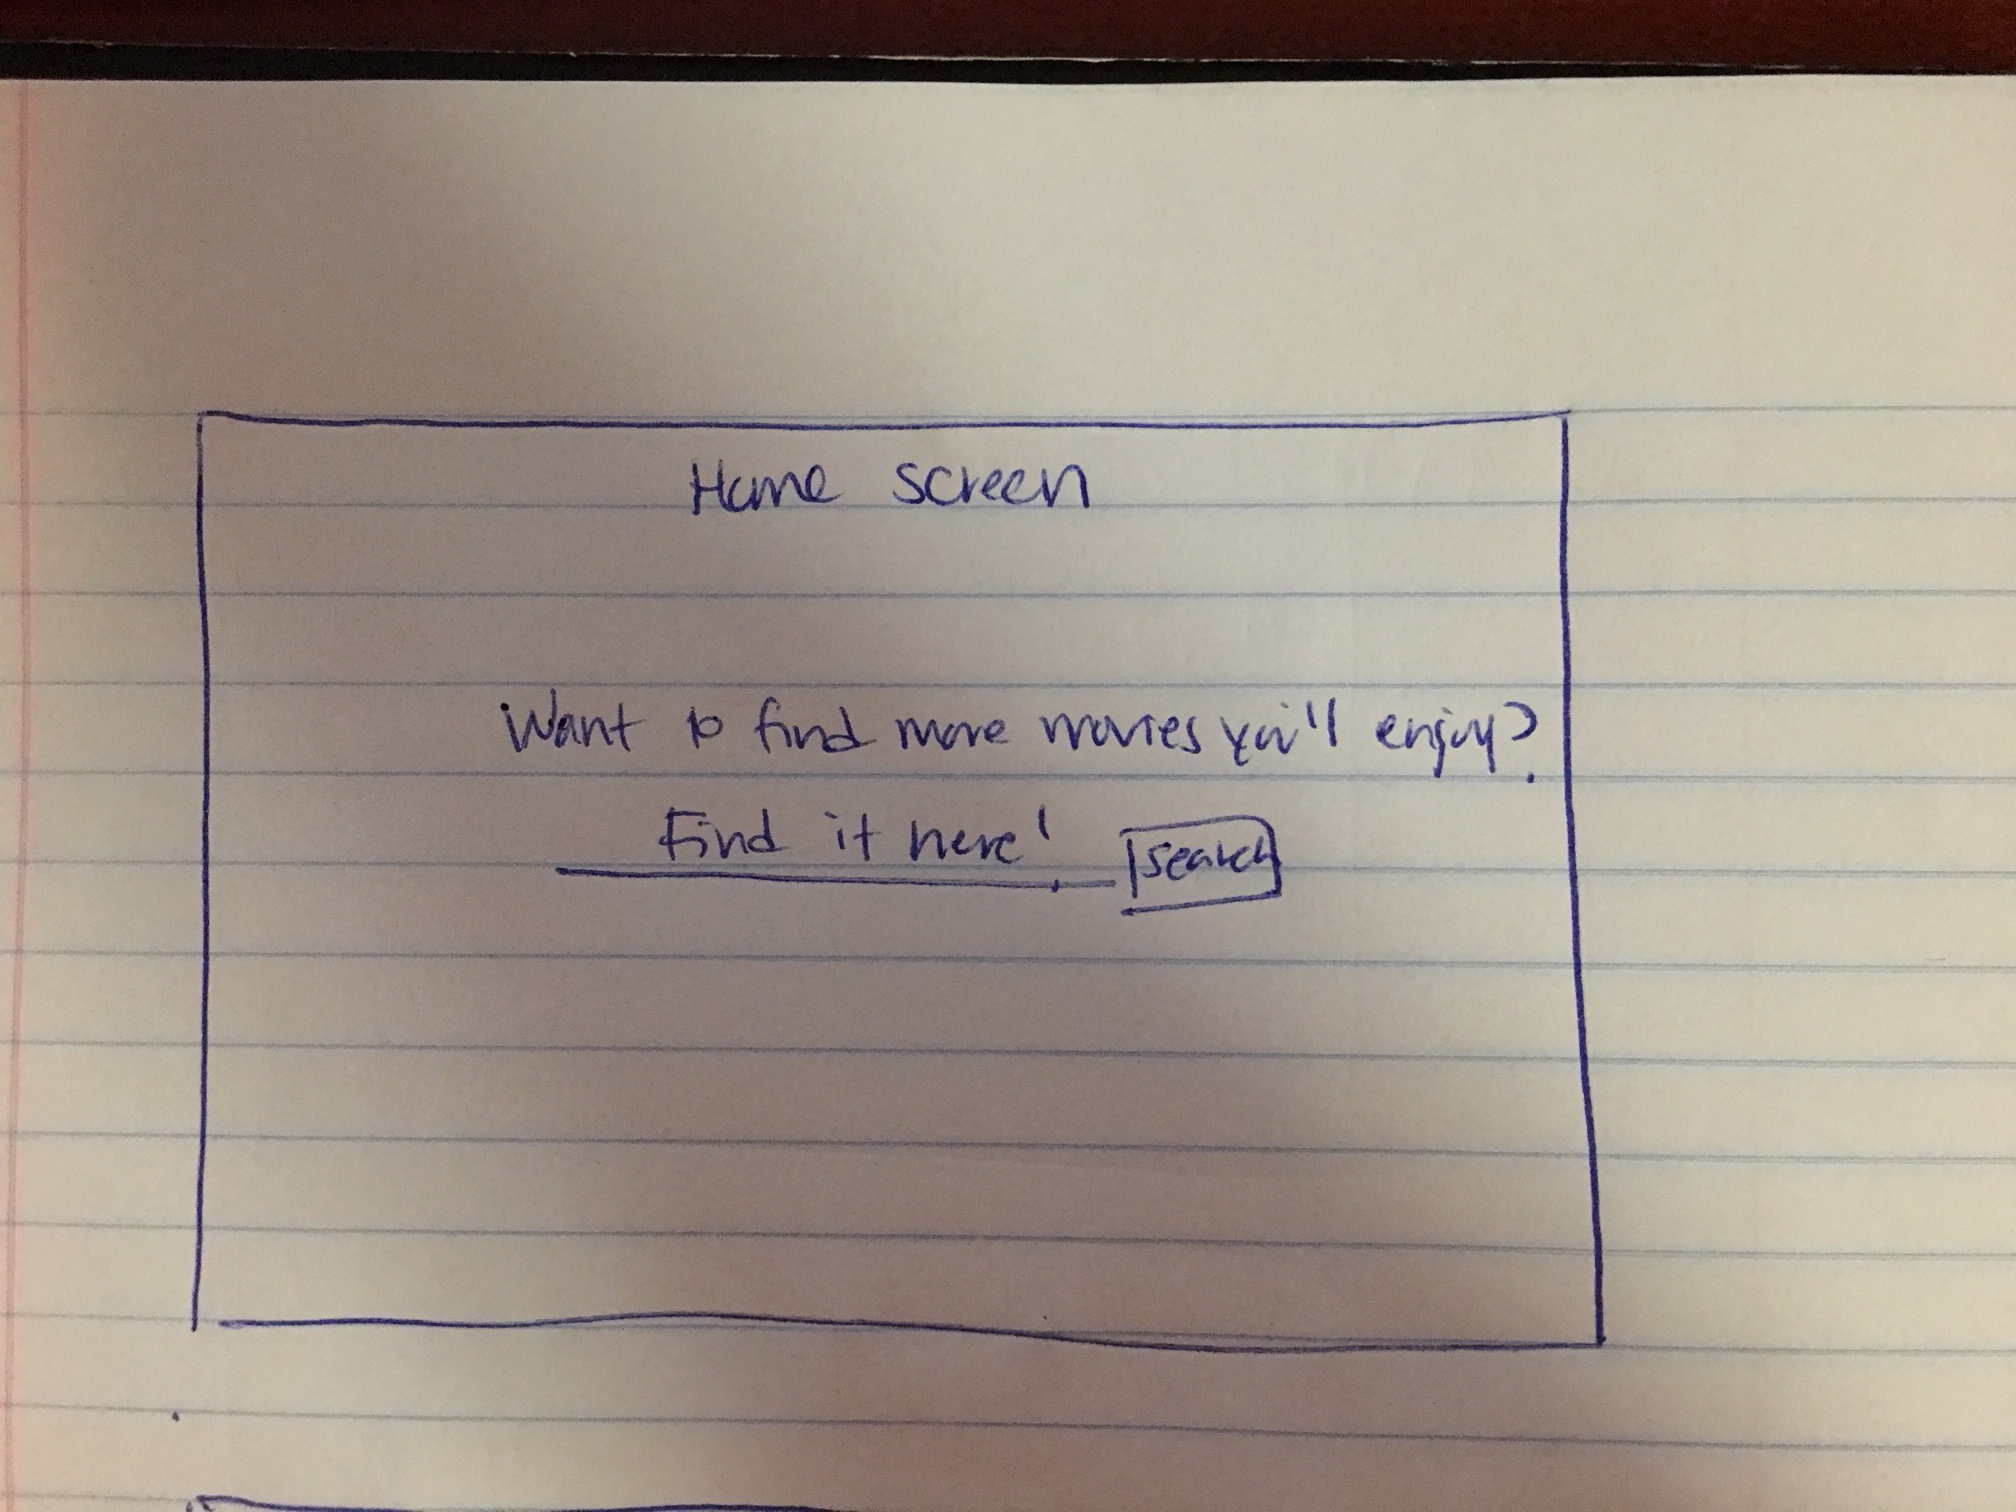 Home screen
Want to find more movies you'll enjoy?
Find it here!
search